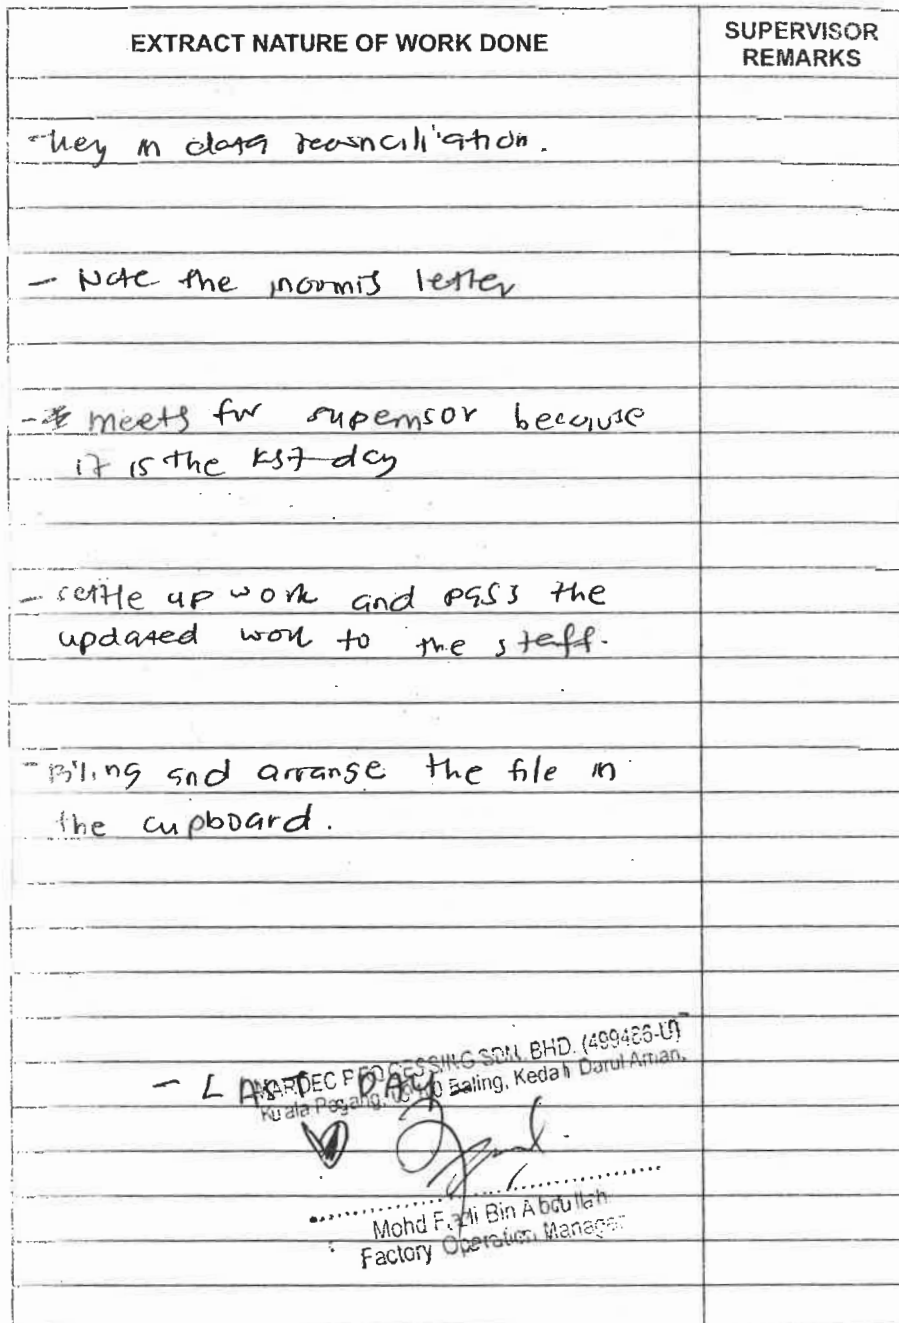 EXTRACT NATURE OF WORK DONE
SUPERVISOR
REMARKS
- key in data reconciliation.
- Note the letter
- meets for supervisor because
it is the last day
- settle up work and pass the
updated work to the staff.
- Filing and arrange the file in
the cupboard.
MARDEC PROCESSING SDN. BHD. (499486-U)
- LAST DAY
Kuala Pegang, Baling, Kedah Darul Aman.
Mohd Bin Abdullah
Factory Operation Manager